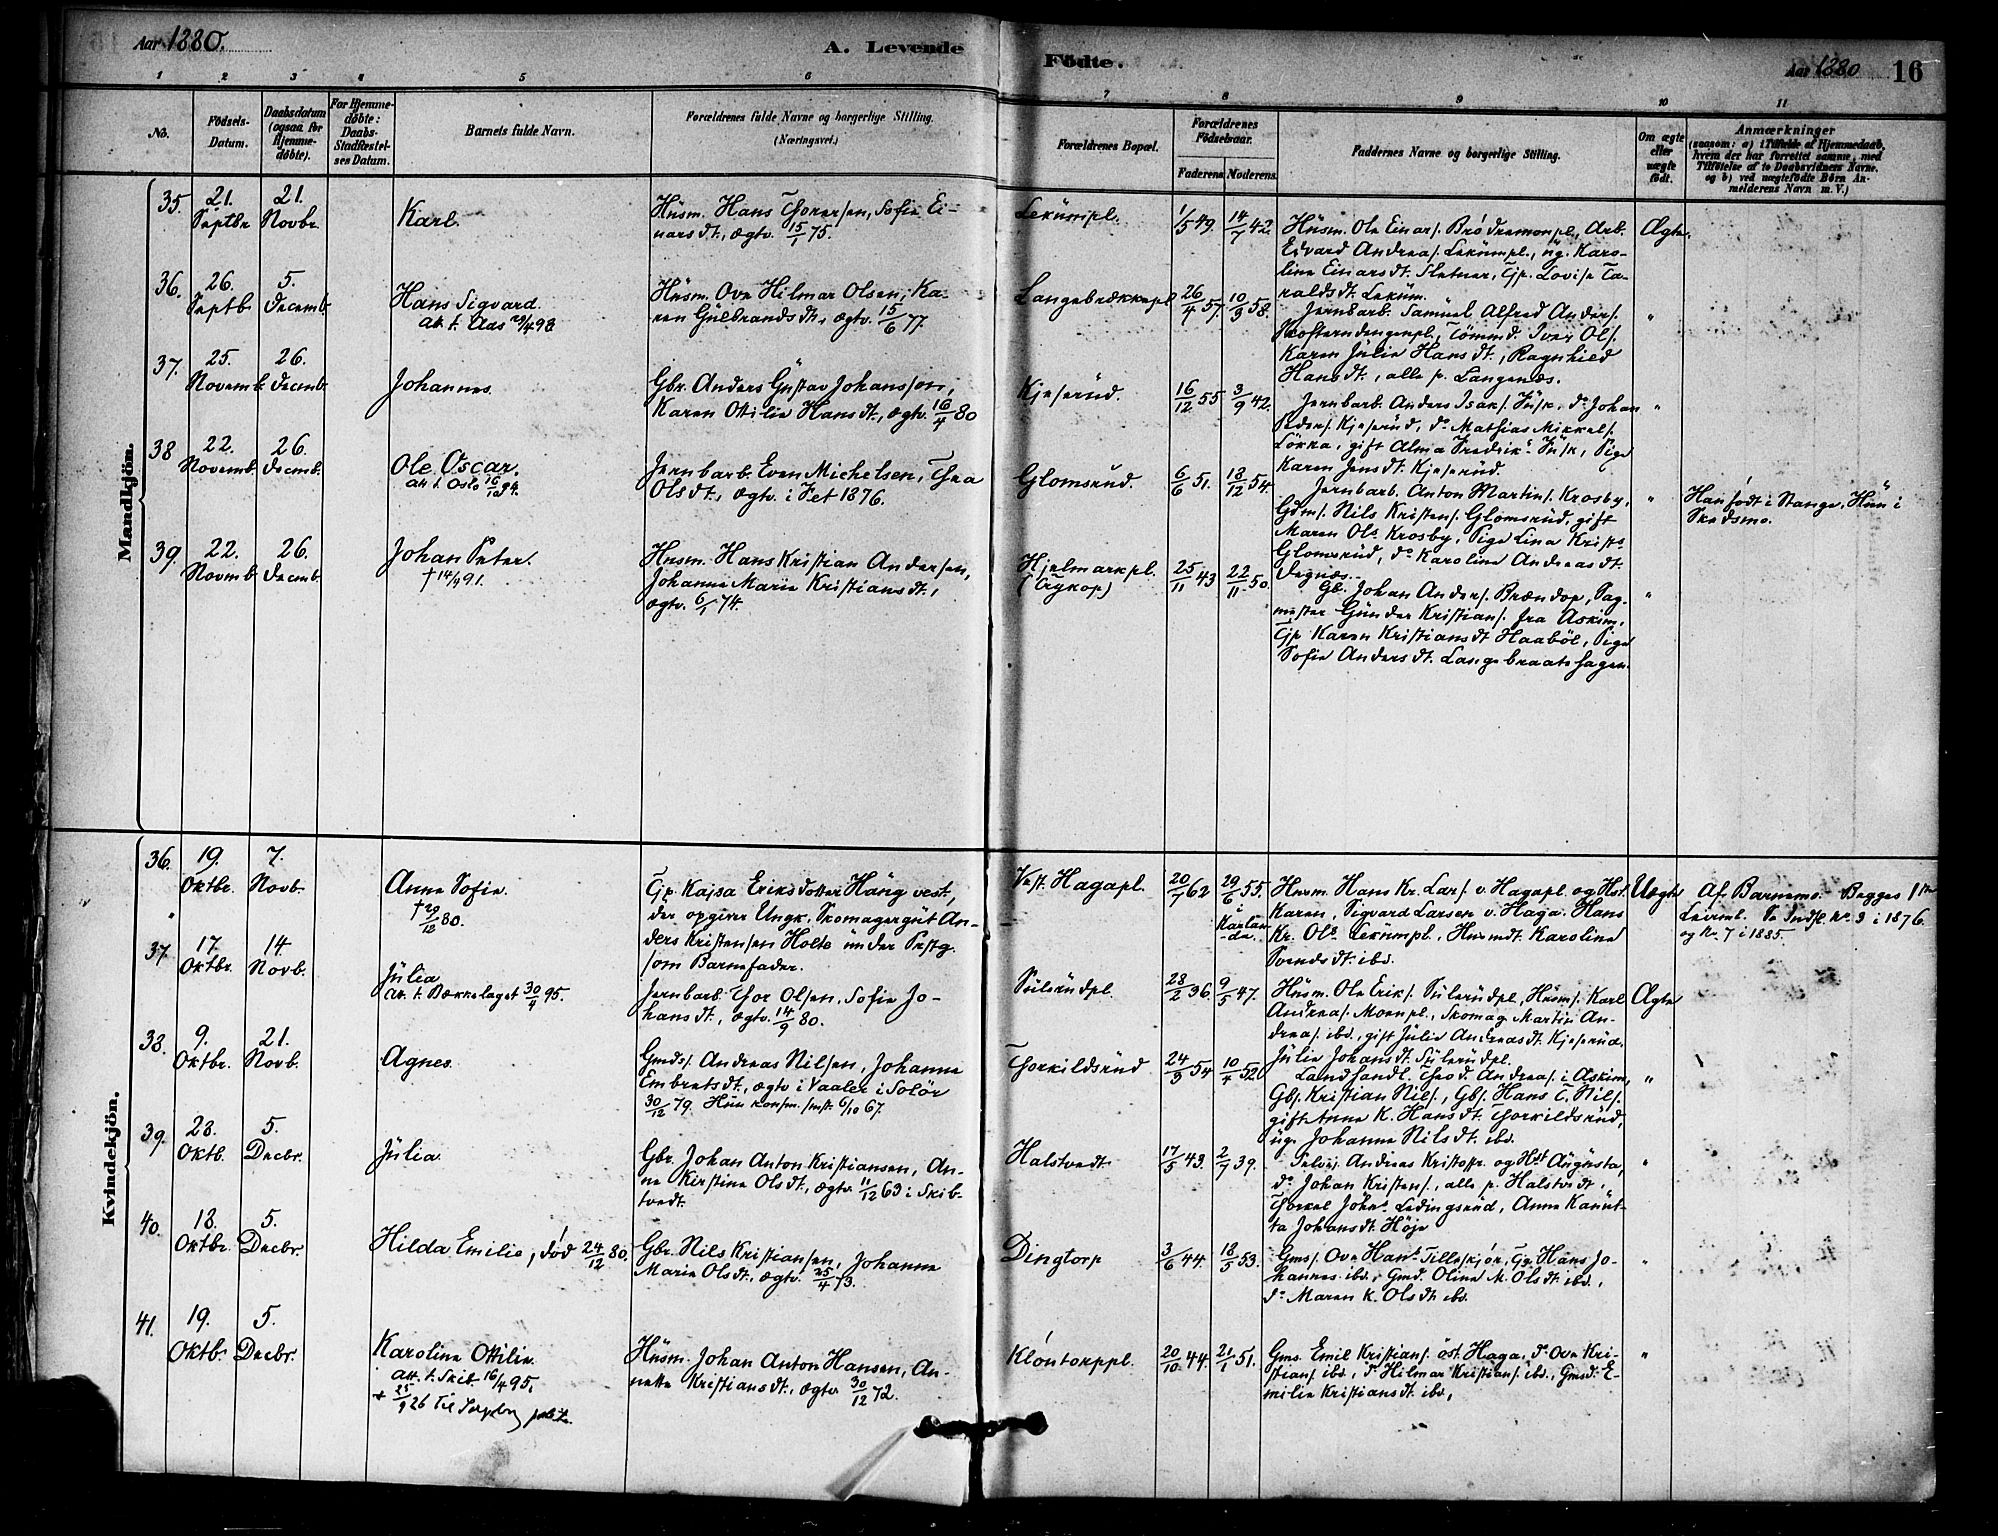 Aar 1880.
A. Levende
Födte.
Aar 1880
16
1 2 3 4 5 6 7 8 9 10 11
No.
Födsels-
Datum.
Daabsdatum
(ogsaa for
Hjemme-
döbte).
For Hjemme-
döbte:
Daabs-
Stadfæstel-
ses Datum.
Barnets fulde Navn.
Forældrenes fulde Navne og borgerlige Stilling.
(Næringsvei.)
Forældrenes Bopæl.
Forældrenes
Födselsaar.
Faderens Moderens.
Faddernes Navne og borgerlige Stilling.
Om ægte
eller
uægte
födt.
Anmærkninger
(saasom: a) i Tilfælde af Hjemmedaab,
hvem der har forrettet samme, med
Tilföielse af to Daabsvidners Navne.
og b) ved uægtefödte Börn An-
melderens Navn m. V.)
Mandkjön.
35.
21.
Septbr.
21.
Novbr.
Karl.
Husm. Hans Thoresen, Sofie Ei-
narsdt., ægtv. 15/1 75.
Lekumpl.
1/5 49.
14/7 42.
Husm. Ole Einars. Brödremonpl., Arb.
Edvard Andreas. Lekumpl., ug. Karo-
line Einarsdt. Sletner, Tjp. Lovise Ta-
raldsdt. Lekum.
Ægte.
36.
26.
Septb.
5.
Decemb.
Hans Sigvard.
att. t. Aas 29/4 98
Husm. Ove Hilmar Olsen, Ka-
ren Gulbrandsdt., ægtv. 15/6 77.
Langebrækkepl
26/4 57.
10/9 58.
Jernbarb. Samuel Alfred Anders.
Tömmd. Iver Ols.
Karen Julie Hansdt., Ragnhild
Hansdt., alle p. Langenæs.
"
37.
25.
Novemb.
26.
Decemb.
Johannes.
Gbr. Anders Gustav Johansson,
Karen Otilie Hansdt., ægtv. 16/4 80
Kjeserud.
16/12 55
3/9 42.
Jernbarb. Anders Isaks. Husk, do Johan
Peders. Kjeserud, do Mathias Mikkels.
Lökka, gift Alma Fredrik. Husk, Pige
Karen Jensdt. Kjeserud.
"
38
22.
Novemb.
26.
Decemb.
Ole Oscar.
att. t. Oslo 16/10 94.
Jernbarb. Even Michelsen, Thea
Olsdt., ægtv. i Fet 1876.
Glomsrud.
6/6 51.
18/12 54.
Jernbarb. Anton Martins. Krosby,
Gdms. Nils Kristens. Glomsrud, gift
Maren Ols. Krosby, Pige Lina Krists
Glomsrud, do Karoline Andreasdt.
Degnes.
"
Han födt i Stange, Hun i
Skedsmo.
39.
22.
Novmb.
26.
Decemb.
Johan Peter.
† 14/4 91.
Husm. Hans Kristian Andersen,
Johanne Marie Kristiansdt.,
ægtv. 6/1 74.
Hjelmarkpl.
(Trykop)
25/11 43
22/11 50.
Gb. Johan Anders. Brændop, Sag-
mester Gunder Kristians. fra Askim,
Tjp Karen Kristiansdt Haaböl, Pige
Sofie Andersdt. Langebraatehagen.
"
Kvindekjön.
36.
19.
Oktbr.
7.
Novb.
Anne Sofie.
† 29/12 80.
Tjp. Kajsa Eriksdotter Haug vest,
der opgiver Ungk. Skomagergut An-
ders Kristensen Holte under Prstg.
som Barnefader.
Vest. Hagapl.
20/7 62
29/6 55.
i
Karlan-
da.
Husm. Hans Kr. Lars. v. Hagapl. og Hst.
Karen, Sigvard Larsen v. Haga. Hans
Kr. Ols Lekumpl., Husmdt. Karoline
Svendsdt. ibd.
Uægte
Af Barnemo. Begges 1ste
Leierml. Se Indfl. No. 3 i 1876.
og No. 7 i 1885.
37
17.
Oktbr.
14.
Novb.
Julie
Att. t. Bækkelaget 30/4 95.
Jernbarb. Thor Olsen, Sofie Jo-
hansdt., ægtv. 14/9 80.
Sulerudpl.
23/2 36.
9/5 47.
Husm. Ole Eriks. Sulerudpl., Husms. Karl
Andreas. Moenpl., Skomag Martin An-
dreas. ibd., gift Julie Andreasdt. Kjeserud.
Julie Johansdt. Sulerudpl.
Ægte
38.
9.
Oktbr.
21.
Novb.
Agnes.
Gmds. Andreas Nilsen, Johanne
Embretsdt., ægtv i Vaaler i Solör
30/12 79. Hun konfm. smst. 6/10 67.
Thorkildsrud
24/9 54
10/4 52.
Landhandl. Theod. Andreas. i Askim,
Gbs. Kristian Nils., Gbs. Hans T. Nils.
gift Anne K. Hansdt. Thorkildsrud,
ug. Johanne Nilsdt. ibd.
"
39.
23.
Oktb.
5.
Decbr.
Julie
Gbr. Johan Anton Kristiansen, An-
ne Kirstine Olsdt., ægtv. 11/12 63 i Skib-
tvedt.
Halstvedt
17/5 43.
2/7 39.
Selvej. Andreas Kristoffr. og Hst Augusta,
do Johan Kristens., alle p. Halstvedt,
Thorkel Johns. Ledingsrud, Anne Kanut-
ta Johansdt. Höje
"
40.
18.
Oktbr.
5.
Decbr.
Hilda Emilie, död 24/12 80.
Gbr. Nils Kristiansen, Johanne
Marie Olsdt., ægtv. 25/4 73.
Dingtorp
3/6 44.
18/5 53.
Gms. Ove Hans. Tilleskjör, Tjg. Hans Jo-
hannes. ibd., Gmd. Oline M. Olsdt. ibd.,
do Maren K. Olsdt ibd.
"
41.
19.
Oktb.
5.
Decbr.
Karoline Otilie.
att. t. Skib. 16/4 95.
+ 25/9 26 til Sarpsborg
Husm. Johan Anton Hansen, An-
nette Kristiansdt., ægtv 30/12 72.
Klöntorppl.
20/10 44.
21/1 51.
Gms. Emil Kristians. öst. Haga, do Ove Kri-
stians. ibd., do Hilmar Kristians. ibd., Gmsdt. E-
milie Kristiansdt ibd.,
"